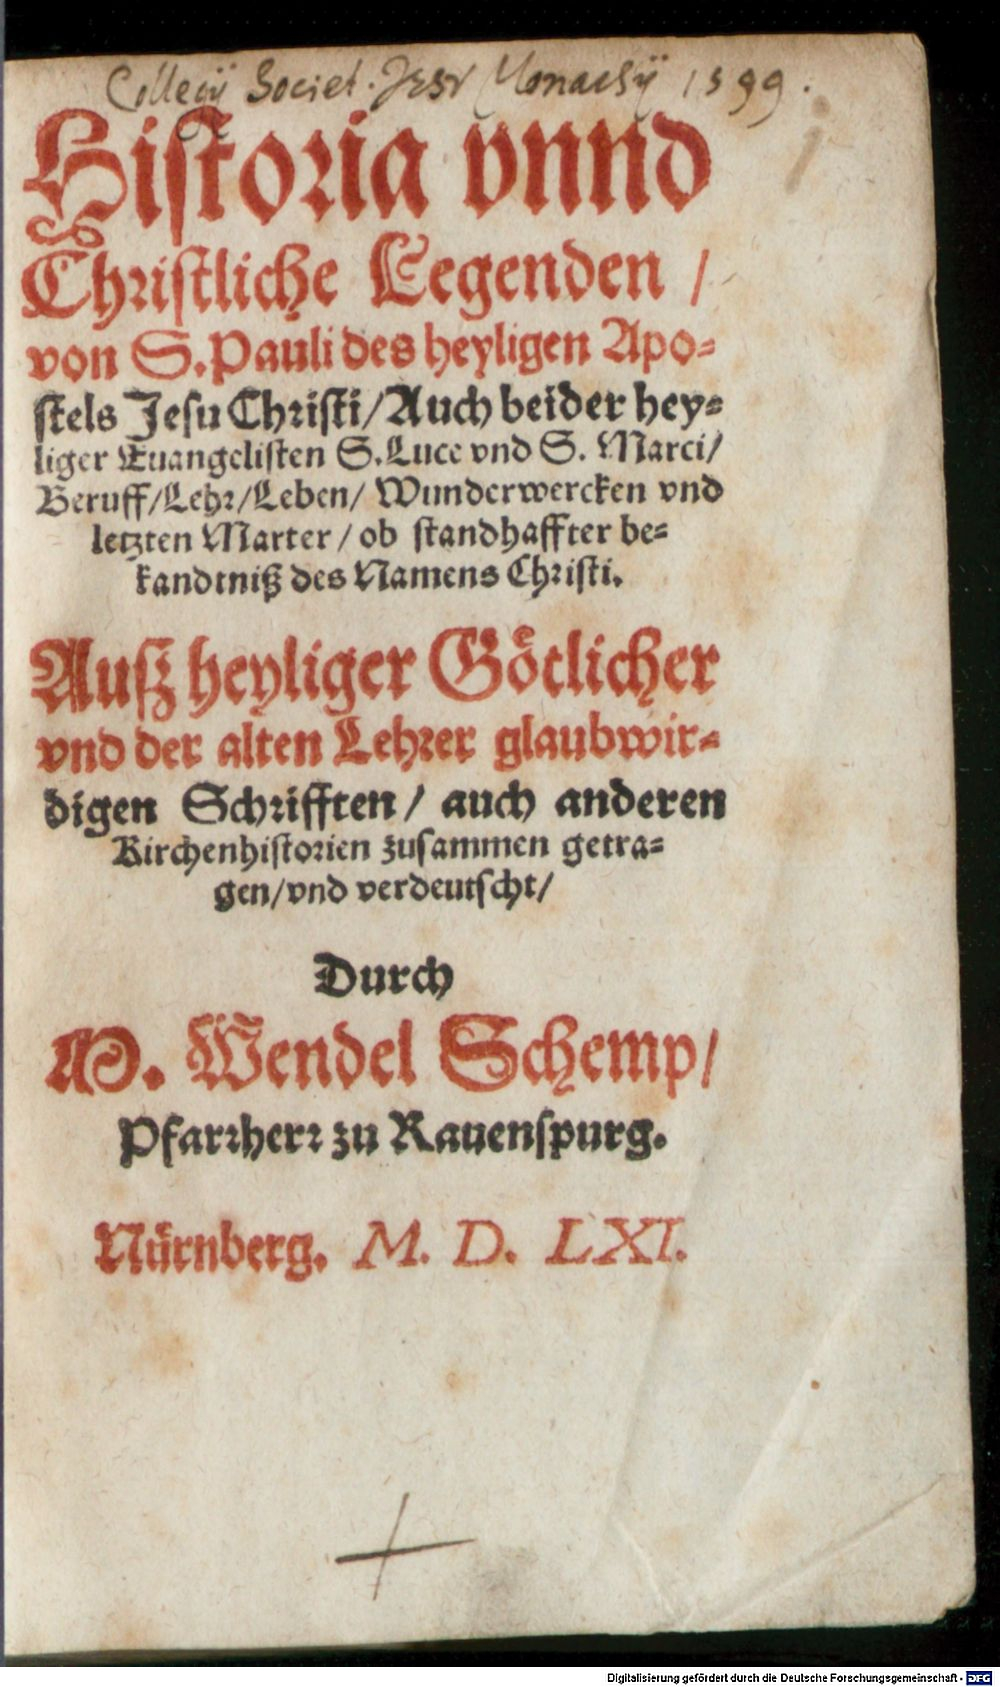 Collegij Societ. Jesv Monachij 1599.
Historia vnnd
Christliche Legenden /
von S. Pauli des heyligen Apo-
stels Jesu Christi / Auch beider hey-
liger Euangelisten S. Luce vnd S. Marci /
Beruff / Lehr / Leben / Wunderwercken vnd
letzten Marter / ob standhaffter be-
kandtniß des Namens Christi.
Außz heyliger Götlicher
vnd der alten Lehrer glaubwir-
digen Schrifften / auch anderen
Kirchenhistorien zusammen getra-
gen / vnd verdeutscht /
Durch
M. Wendel Schemp /
Pfarrherr zu Rauenspurg.
Nürnberg. M. D. LXI.
Digitalisierung gefördert durch die Deutsche Forschungsgemeinschaft - DFG